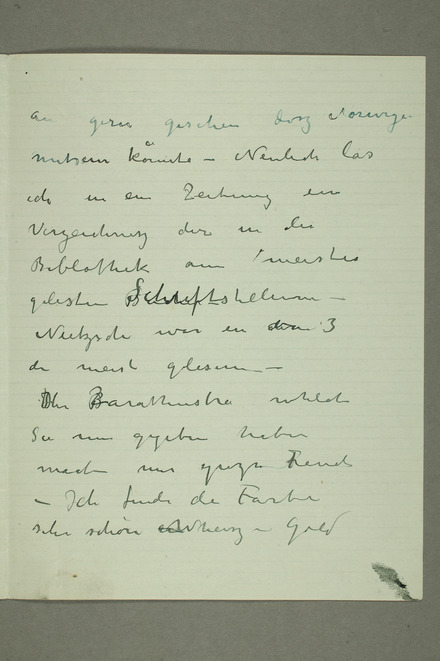 gern gesehen dasz Norwege
nutzen könnte – Neulich las
ich in ein Zeitung ein
Verzeichnisz der in die
Bibliothek am meisten
gelesten Schriftstellern –
Nietzsche war ein 3
de meist glesenn –
Der Barathustra
Sie mir gegeben haben
macht mir groze Freude
– Ich finde die Farbe
sehr schön Weisz – Gold